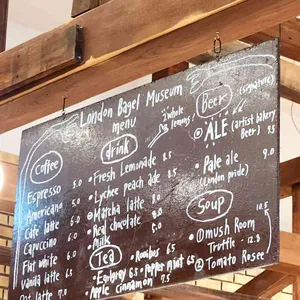 London Bagel Museum
menu
Coffee
Espresso 5.0
Americano 5.0
Cafe latte 6.0
Capuccino 6.0
Flat white 6.0
Vanilla latte 6.5
latte 7.0
drink
2 whole
lemons!
• Fresh Lemonade 8.5
• Lychee peach ade 8.5
• Matcha latte 8.0
• Real chocolate 8.0
• Milk 5.0
Tea
• Rooibos 6.5
• Earlgrey 6.5 • Pepper mint 6.5
• Apple cinnamon 7.5
Beer (signature)
ALE (artist bakery
Beer) 9.5
Pale ale 9.0
(London pride)
Soup
10.5
① mush Room
Truffle • 12.8
② Tomato Rosee